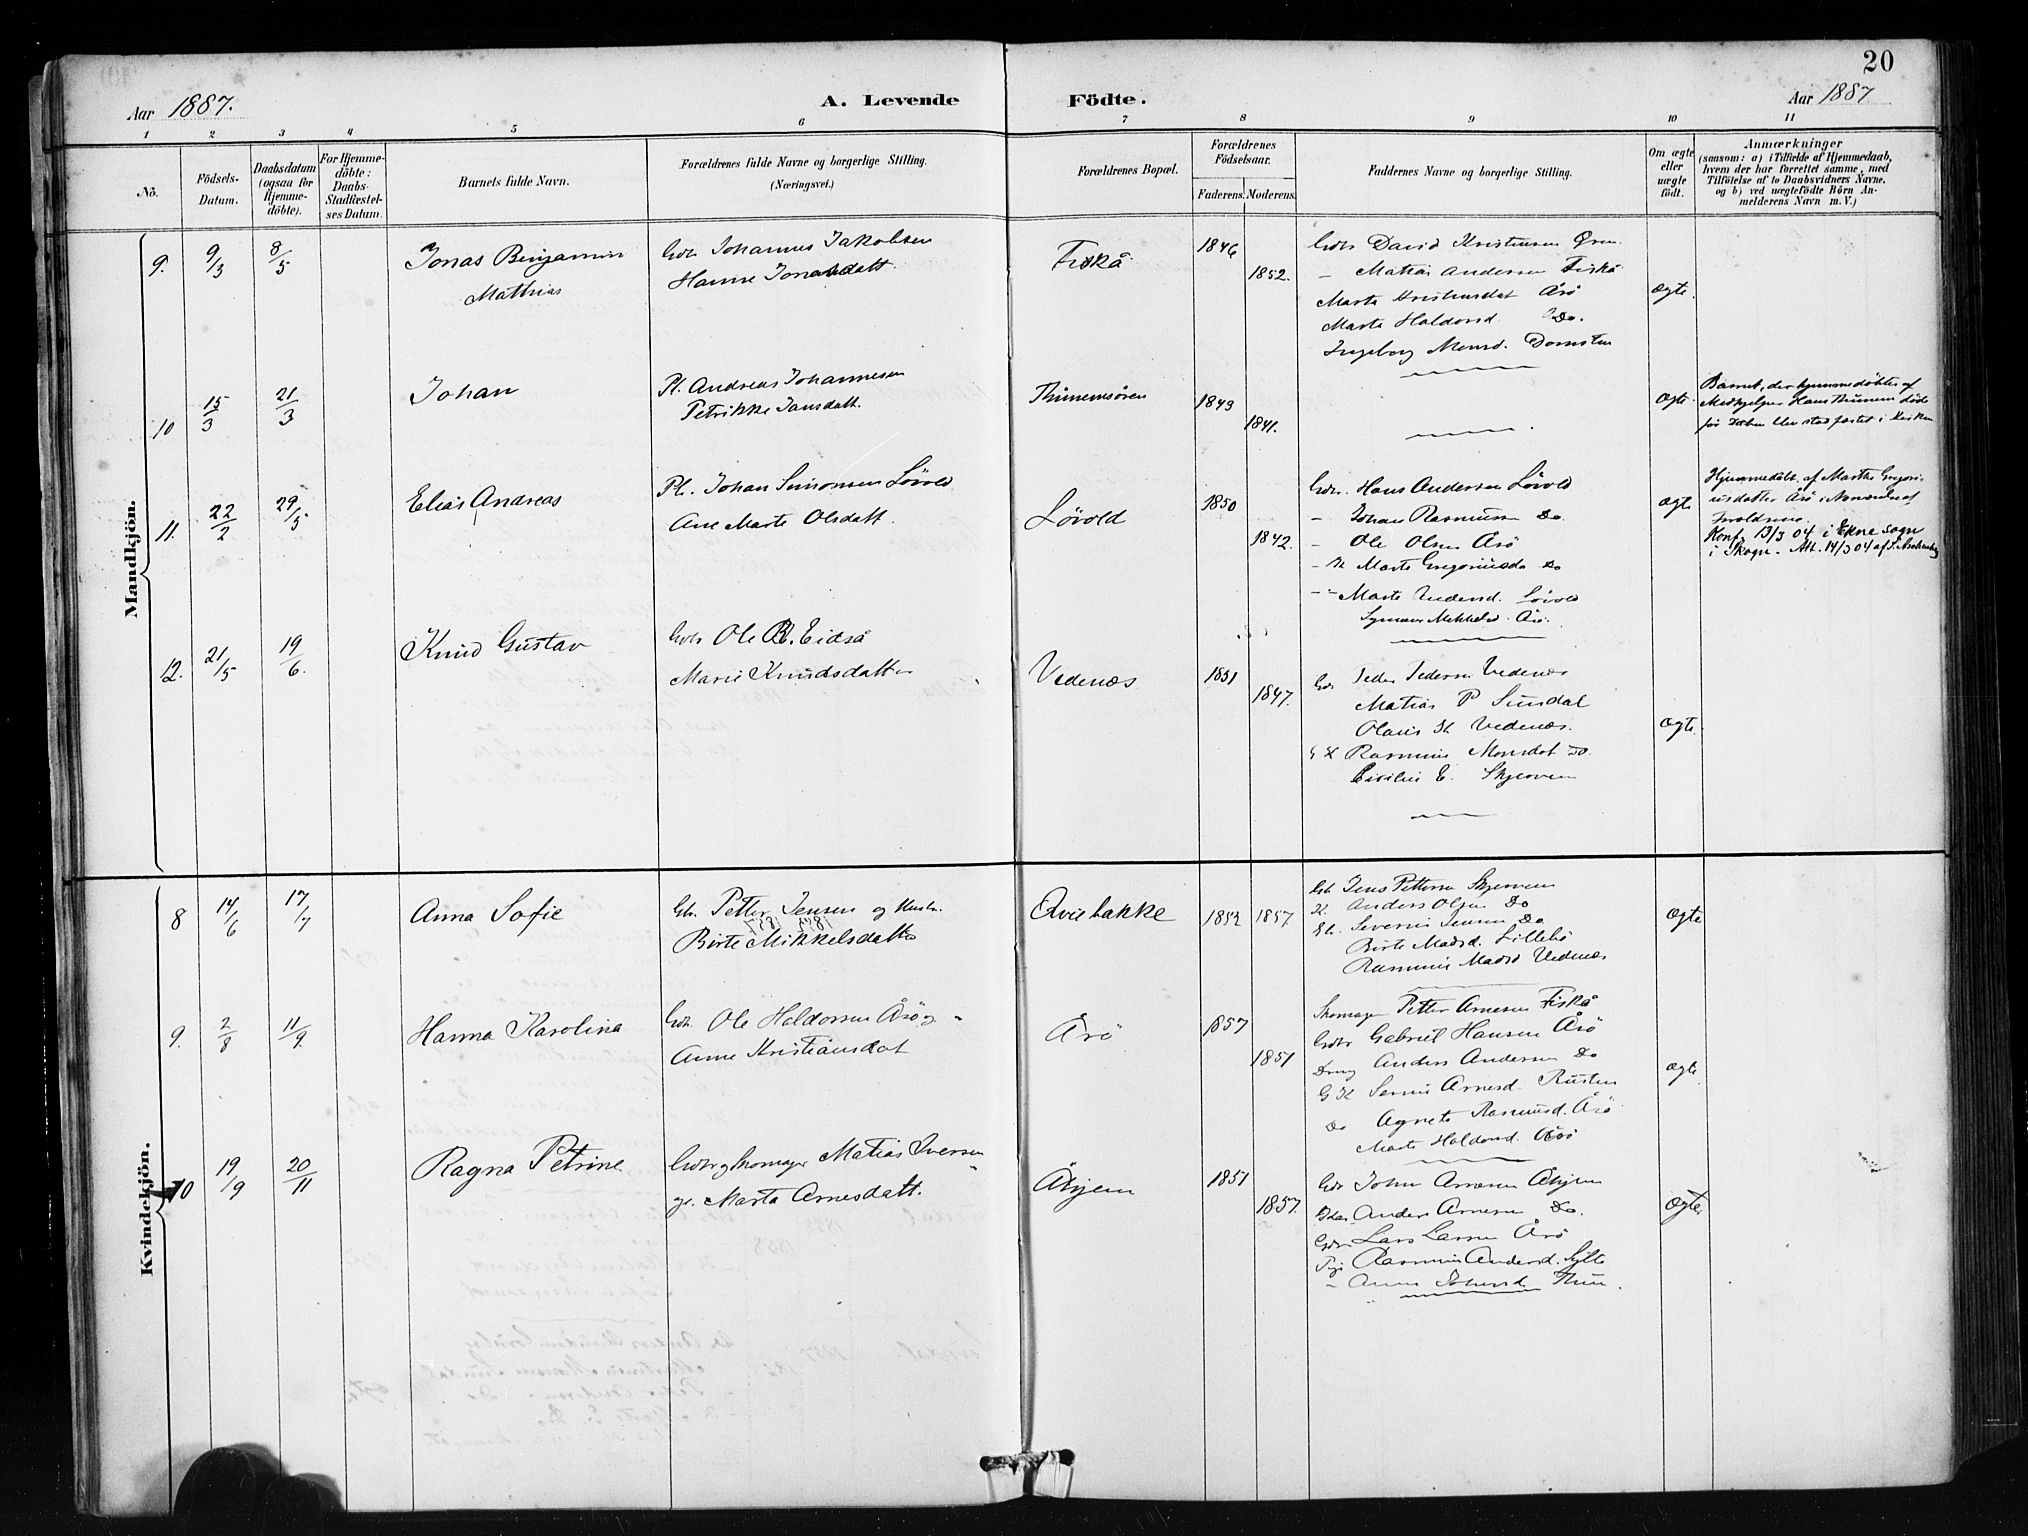 20
Aar 1887.
A. Levende Födte.
Aar 1887
1 2 3 4 5 6 7 8 9 10 11
No.
Födsels-Datum.
Daabsdatum (ogsaa för Hjemme-döbte).
For Hjemme-döbte: Daabs-Stadfæstel-ses Datum.
Barnets fulde Navn.
Forældrenes fulde Navne og borgerlige Stilling.
(Næringsvei.)
Forældrenes Bopæl.
Forældrenes Födselsaar.
Faderens. Moderens.
Faddernes Navne og borgerlige Stilling.
Om ægte eller uægte födt.
Anmærkninger
(saasom: a) i Tilfælde af Hjemmedaab,
hvem der har forrettet samme, med
Tilföielse af to Daabsvidners Navne,
og b) ved uægtefödte Börn An-
melderens Navn m. V.)
Mandkjön.
9. 9/3 8/5 Jonas Benjamin
Mathias
Gdr. Johannes Jakobsen
Hanne Jonasdatt.
Fiskå 1846 1852.
Gdr David Kristensen
– Matias Andersen Fiskå
Marte Åsö
Marte Haldorsd. Do.
Ingeborg Monsd.
ægte.
10 15/3 21/3 Johan
Pl. Andreas Johannesen
Petrikke Jansdatt.
1843 1841.
ægte.
Barnet, der hjemmedöbtes af
Medhjelper Hans döde
för blev stadfæstet i Kirken
11. 22/2 29/5 Elias Andreas
Pl. Johan Simonsen Lövold
Ane Marte Olsdatt.
Lövold 1850 1842.
Gdr. Hans Andersen Lövold
– Johan Rasmussen Do.
– Ole Olsen Årö
– K Marte Do
– – Marte Andersd. Lövold
Årö.
ægte
Hjemmedöbt af Marthe
Årö i af
Forældrene.
Konf. 13/3 04 i Ekne sogn
i Skogn. Att. 14/3 04 af
12. 21/5 19/6. Knud Gustav
Gdr Ole R. Eidså
Marie Knudsdatter
Vedenæs 1851 1847.
Gdr Peder Pedersen Vedenæs
Matias P Sundal
K Vedenæs.
Rasmus Monsdat Do.
E.
ægte.
Kvindekjön.
8 14/6 17/7 Anna Sofie
Gbr. Petter Jensen og Hustr.
Birte Mikkelsdatter
1853 1857.
Jens Pettersen
K. Anders Olsen Do
Severin Jensen Do
Birte Madsd. Lillebö
Rasmus Madsd Vedenæs
ægte
9. 2/8 11/9. Hanna Karolina
Gdr. Ole Haldorsen Årö og
Anne Kristiansdat
Årö 1857 1851
Skomager Petter Arnesen Fiskå
Gdbr Gabriel Hansen Årö
Dreng Anders Andersen Do
G K Arnesd. Rusten
Do Agnete Rasmusd. Årö
Marte Haldorsd. Årö
ægte.
10 19/9 20/11 Ragna Petrine
Gdbr og Skomager Matias Iversen
og Marta Arnesdatt.
Åhjem 1851 1857.
Gdr John Arnesen Åhjem
Anders Arnesen Do.
Gdr Lars Larsen Årö
Pige Andersd. Sylte
– Anne
ægte